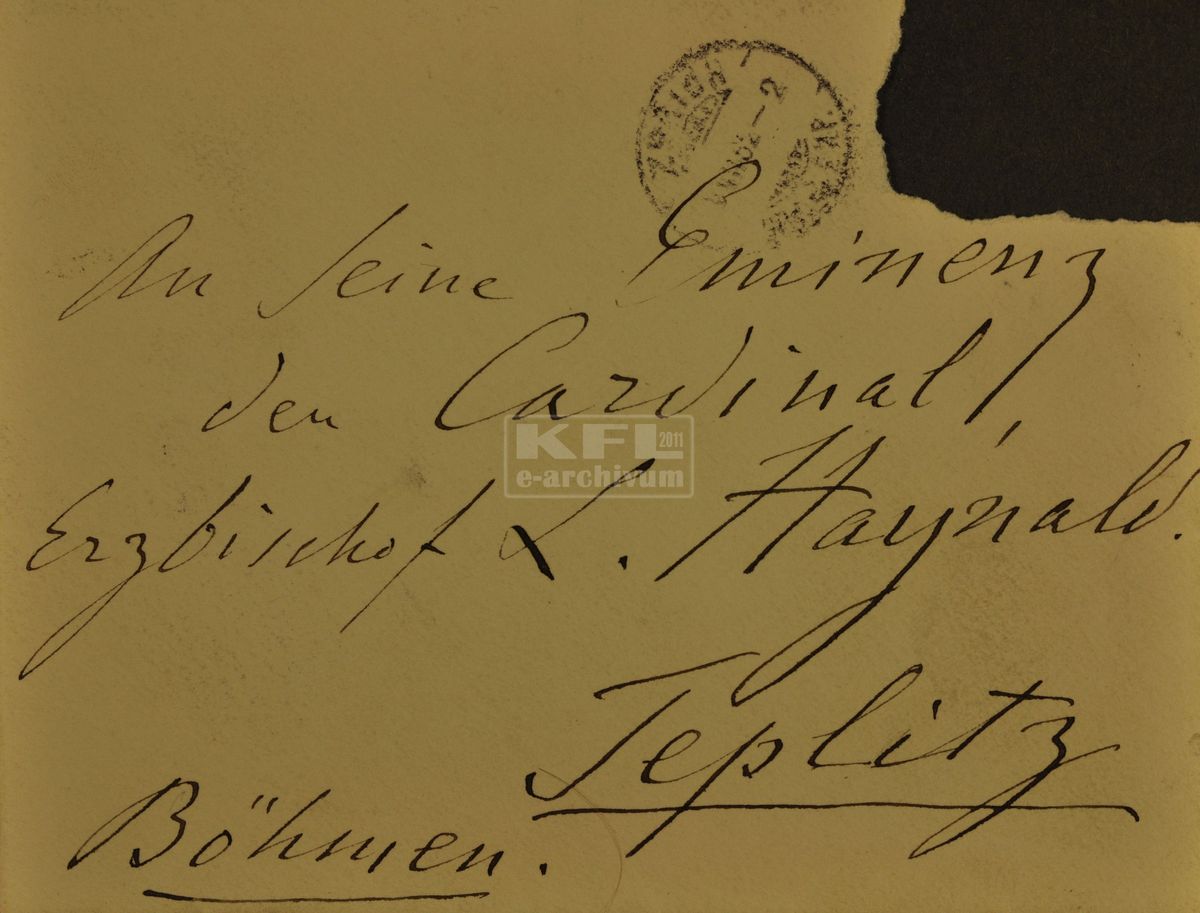 An Seine Eminenz
den Cardinal,
Erzbischof L. Haynald.
Teplitz
Böhmen.
KFL 2011
e-archivum